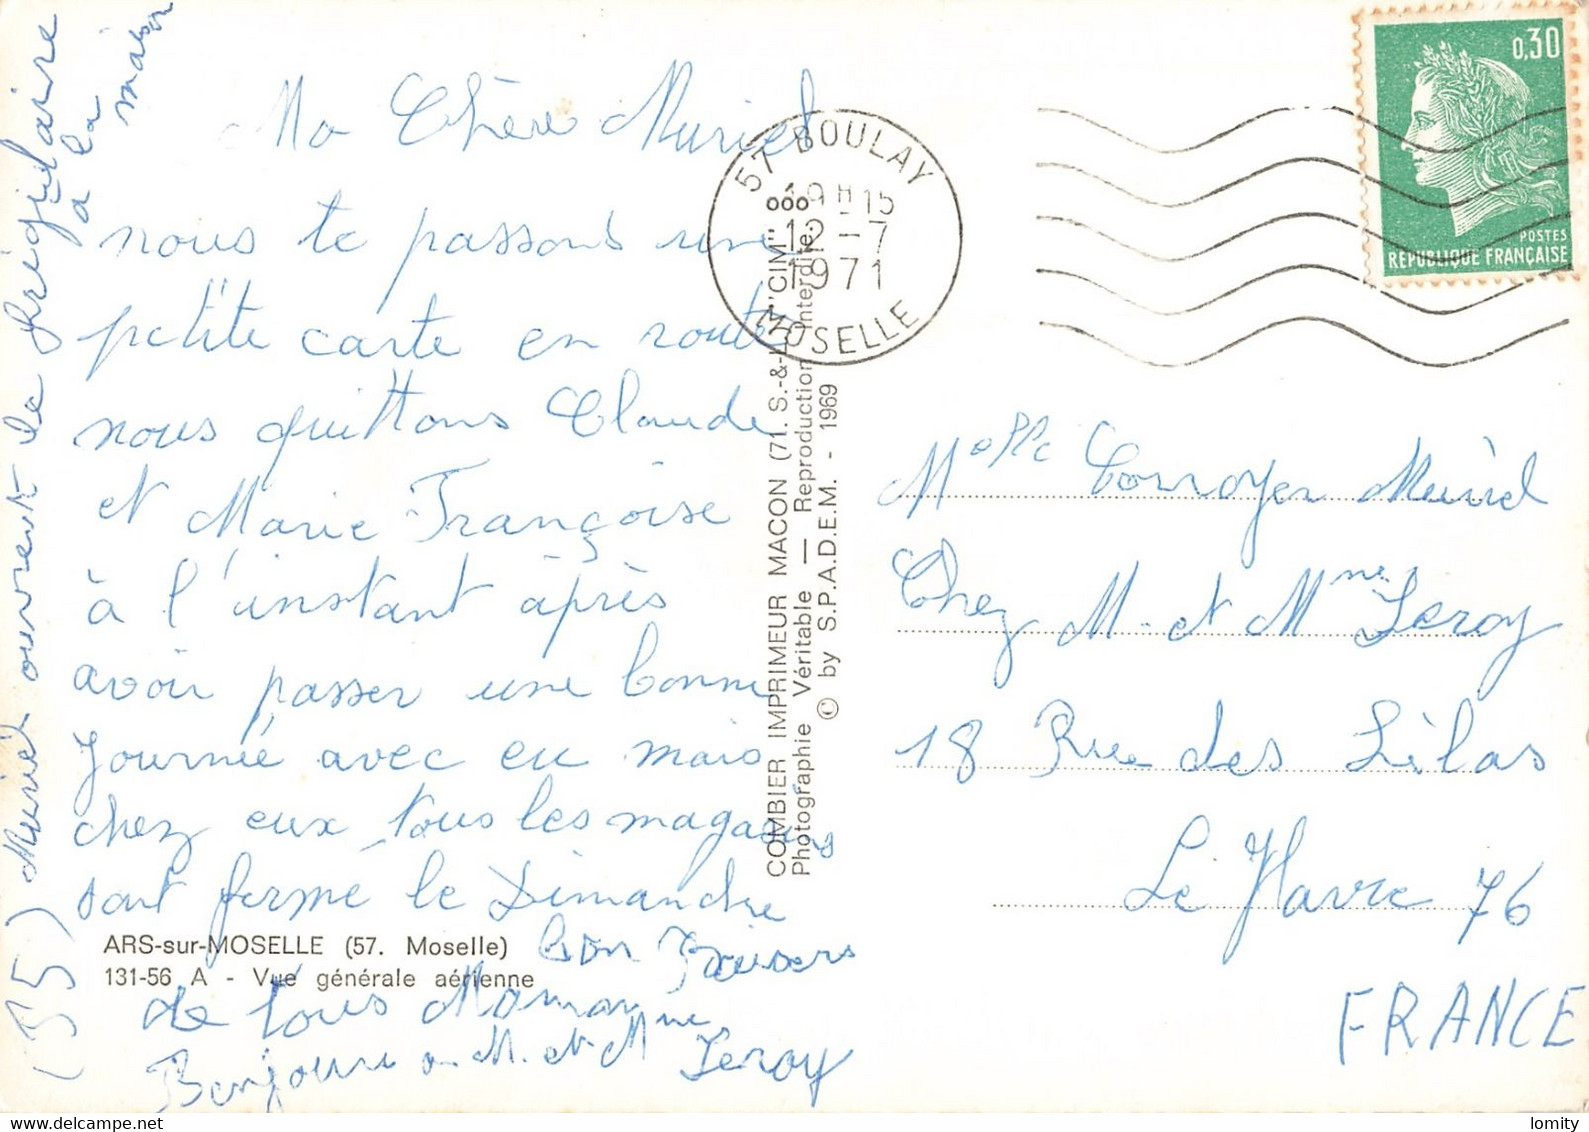 Ma Chère Muriel
nous te passons une
petite carte en route
nous quittons Claude
et Marie Françoise
à l'instant après
avoir passer une bonne
Journée avec eu mais
chez eux tous les magasins
sont fermé le Dimanche
bon Baisers
de tous Maman
Bonjour a M. et Mme Leroy
(55) Muriel ouvrent le frigidaire
à la
maison
ARS-sur-MOSELLE (57. Moselle)
131-56 A - Vue générale aérienne
COMBIER IMPRIMEUR MACON (71. S.-&-L.) "CIM"
Photographie Véritable — Reproduction interdite.
© by S.P.A.D.E.M. - 1969
57 BOULAY
19H15
12-7
1971
MOSELLE
0,30
POSTES
REPUBLIQUE FRANÇAISE
Melle Corroyer Muriel
Chez M. et Mme Leroy
18 Rue des Lilas
Le Havre 76
FRANCE
lomity